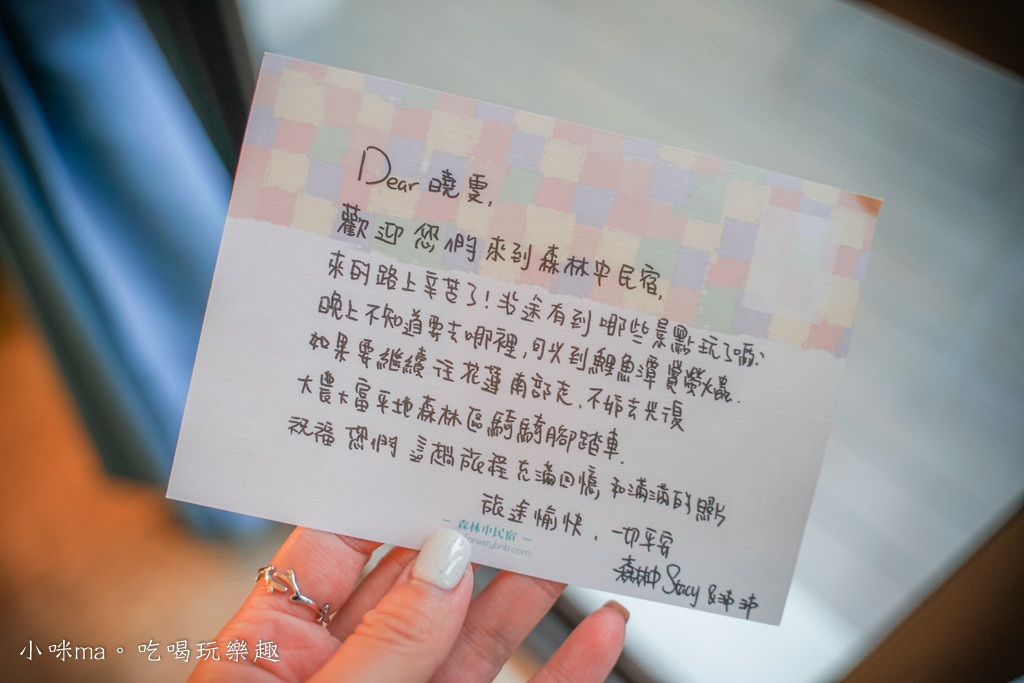 Dear 曉雯,
歡迎您們來到森林中民宿,
來的路上辛苦了!沿途有到哪些景點玩了嗎?
晚上不知道要去哪裡,可以到鯉魚潭賞螢火蟲.
如果要繼續往花蓮南部走,不妨去光復
大農大富平地森林區騎騎腳踏車.
祝福您們這趟旅程充滿回憶,和滿滿的照片
旅途愉快,一切平安
森林中 Stacy & 沛沛
— 森林中民宿 —
forestybnb.com
小咪ma。吃喝玩樂趣